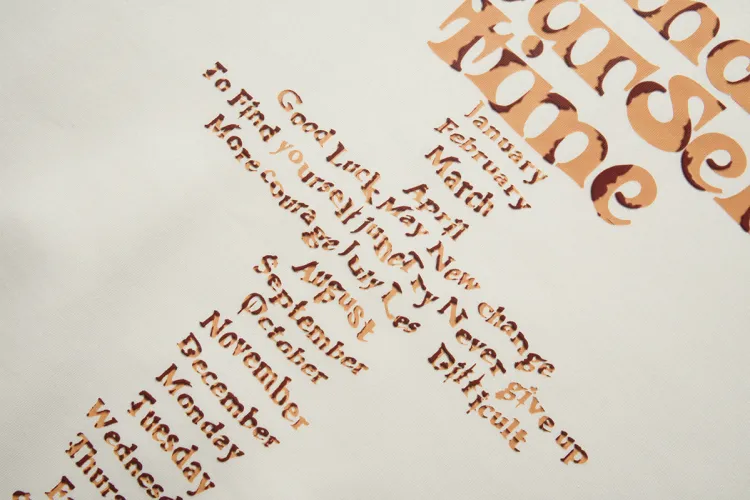 time
January
February
March
April
Good Luck May New change
To Find yourself June Try Never give up
More courage July Les Difficult
August
September
October
November
December
Monday
Tuesday
Wednesd
Thurs